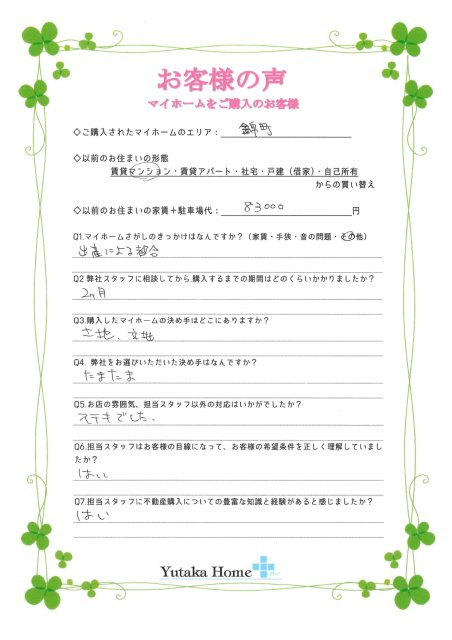 お客様の声
マイホームをご購入のお客様
◇ご購入されたマイホームのエリア： 錦町
◇以前のお住まいの形態
賃貸マンション・賃貸アパート・社宅・戸建（借家）・自己所有
からの買い替え
◇以前のお住まいの家賃＋駐車場代： 83000 円
Q1.マイホームさがしのきっかけはなんですか？（家賃・手狭・音の問題・その他）
出産による都合
Q2 弊社スタッフに相談してから、購入するまでの期間はどのくらいかかりましたか？
2ヶ月
Q3.購入したマイホームの決め手はどこにありますか？
土地、
Q4. 弊社をお選びいただいた決め手はなんですか？
たまたま
Q5.お店の雰囲気、担当スタッフ以外の対応はいかがでしたか？
ステキでした。
Q6.担当スタッフはお客様の目線になって、お客様の希望条件を正しく理解していまし
たか？
はい
Q7.担当スタッフに不動産購入についての豊富な知識と経験があると感じましたか？
はい
Yutaka Home